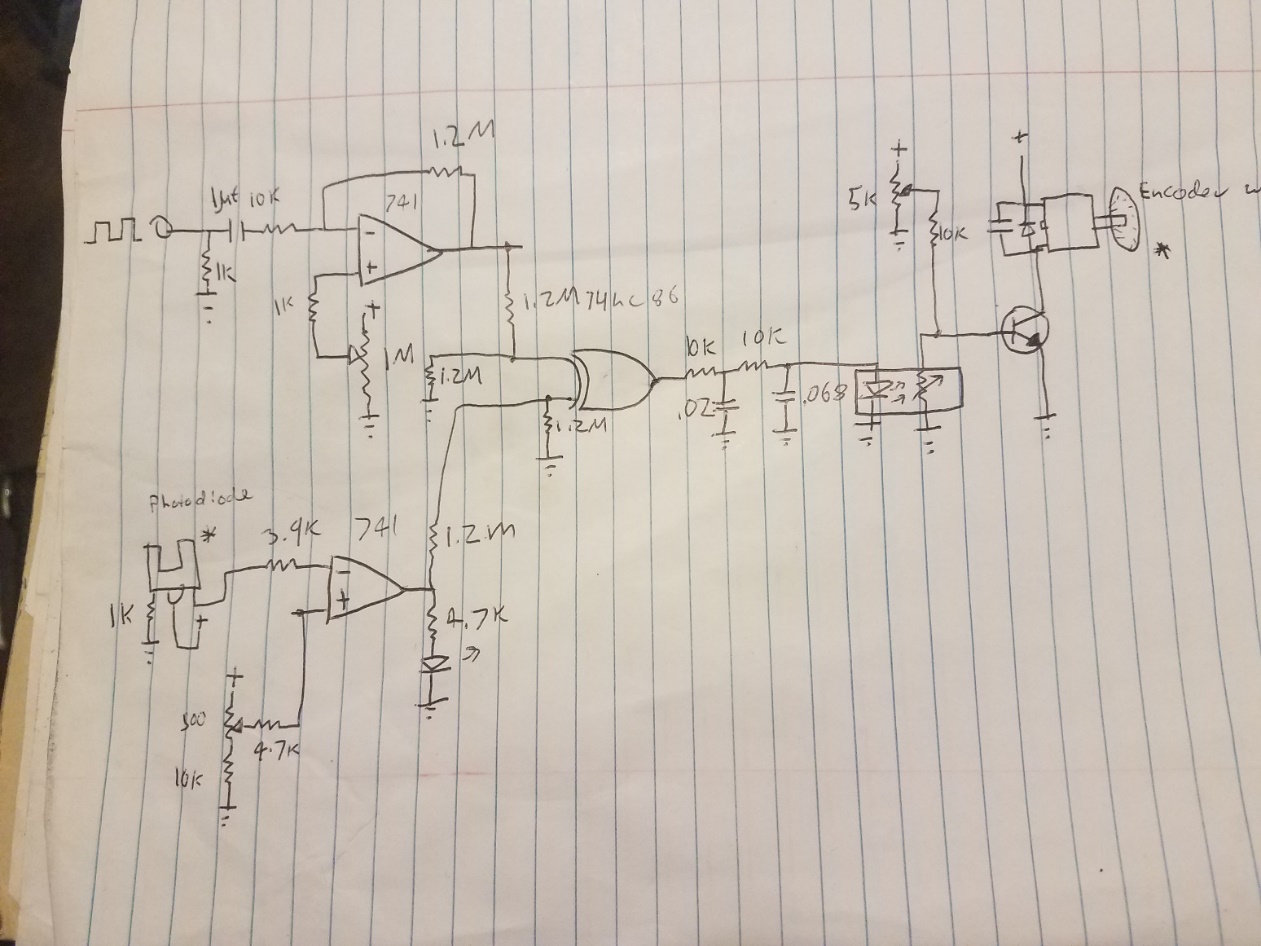 1.2M
1µf 10K
741
-
+
1K
1K
+
1M
1.2M 74HC86
1.2M
1.2M
10K
10K
.02
.068
+
5K
10K
+
Encoder w
*
Photodiode
*
3.9K
741
-
+
1K
+
1.2M
4.7K
+
500
4.7K
10K